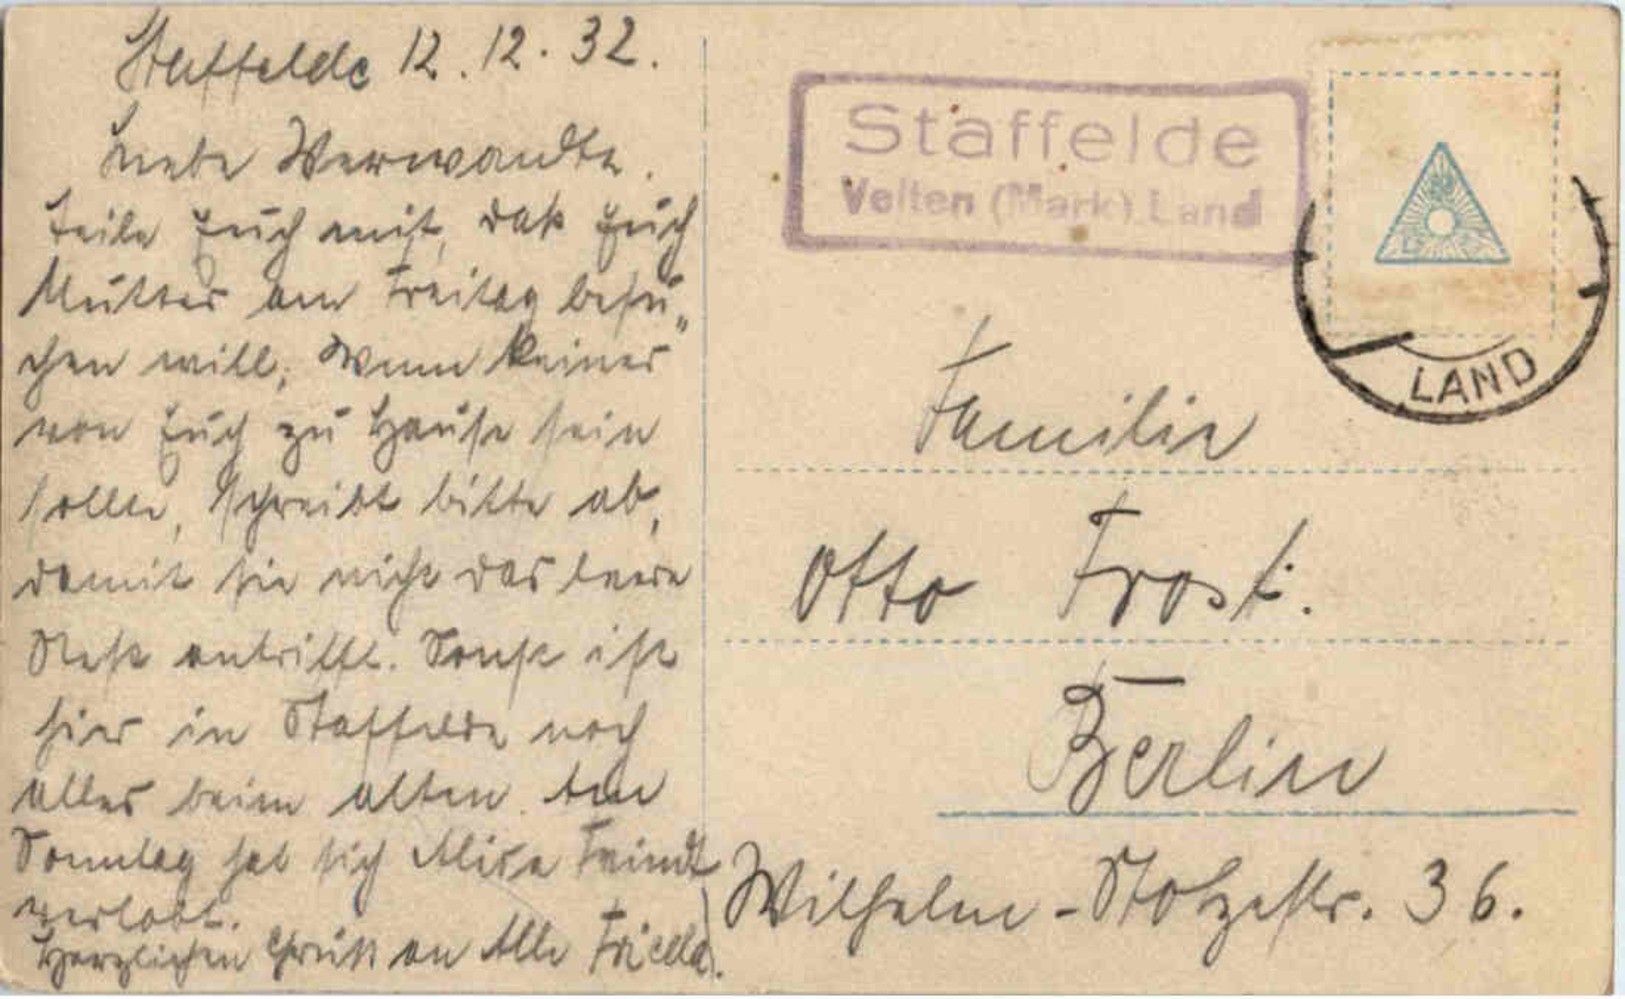 Staffelde 12.12.32.
Liebe Verwandte.
Teile Euch mit, daß Euch
Mutter am Freitag besu„
chen will, Wenn keiner
von Euch zu Hause sein
sollte, schreibt bitte ab,
damit sie nicht das leere
Nest antrifft. Sonst ist
hier in Staffelde noch
alles beim alten. Am
Sonntag hat sich Alice
verlobt.
Herzlichen Gruß an Alle Frieda.
Staffelde
Velten (Mark) Land
LAND
Familie
Otto Frost.
Berlin
Wilhelm-Stolzestr. 36.